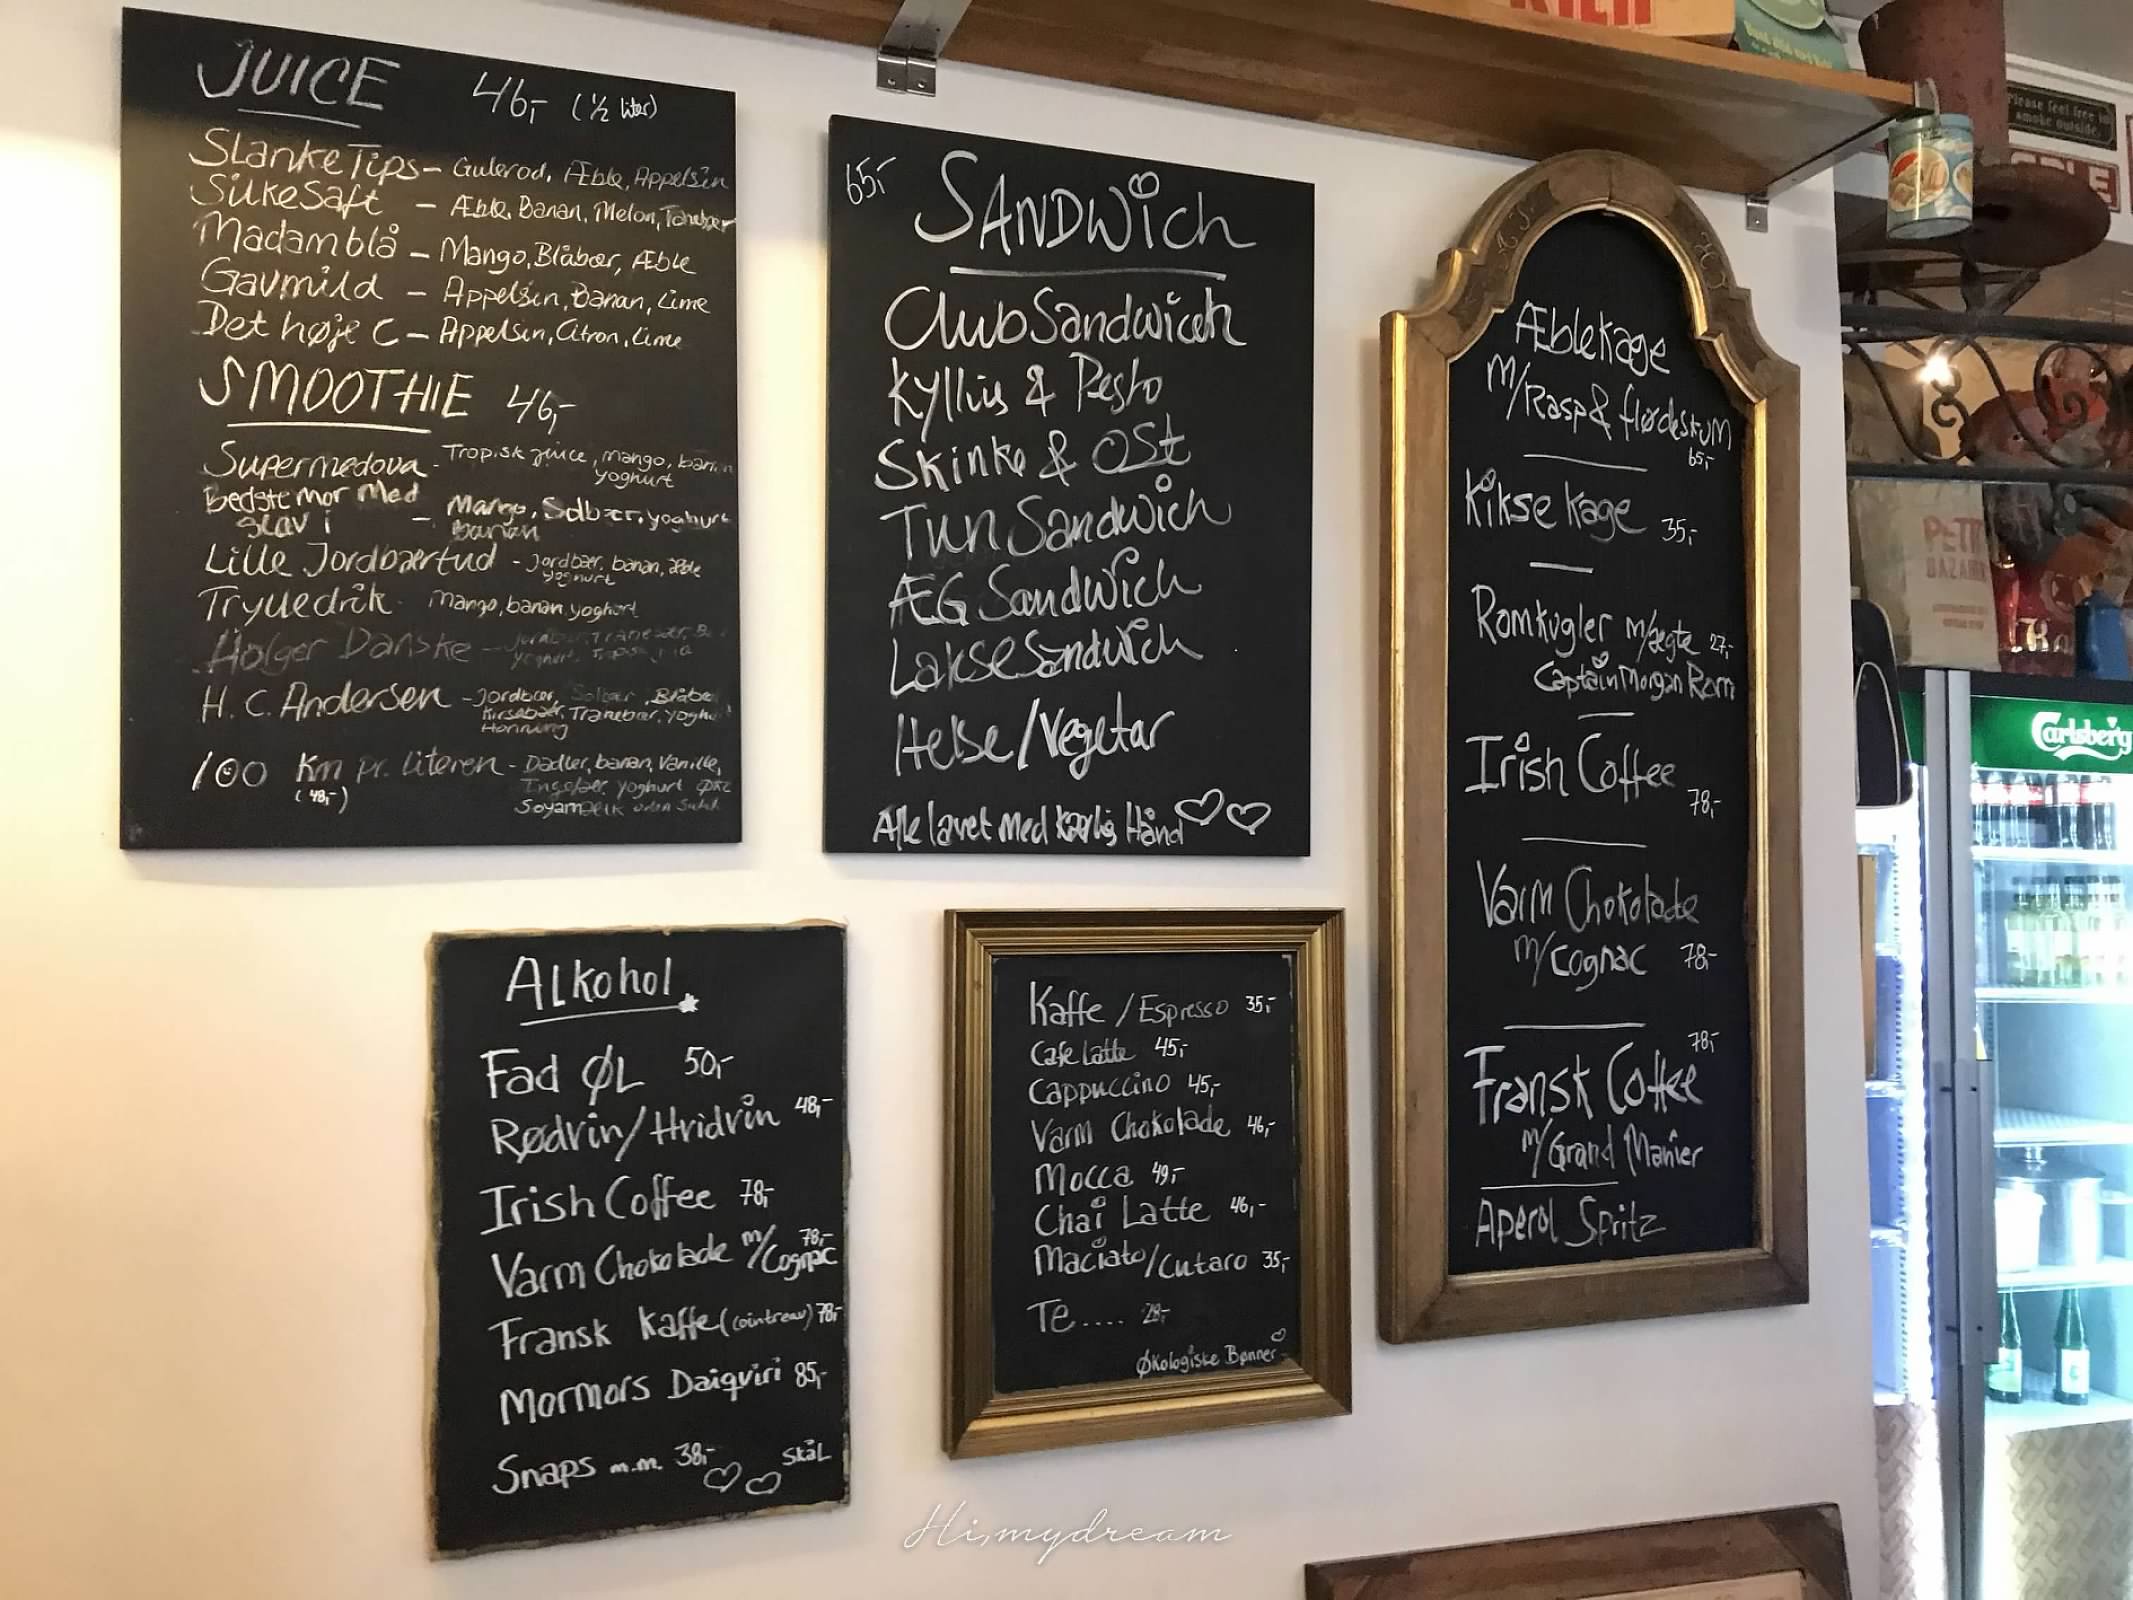 JUICE 46,- (½ liter)
SlankeTips – Gulerod, Æble, Appelsin
Silkesaft – Æble, Banan, Melon, Tranebær
Madam blå – Mango, Blåbær, Æble
Gavmild – Appelsin, Banan, Lime
Det høje C – Appelsin, Citron, Lime
SMOOTHIE 46,-
Supermedova - Tropisk juice, mango, banan
yoghurt
Bedstemor med – Mango, Solbær, yoghurt
slav i banan
Lille Jordbærtud - Jordbær, banan, æble
yoghurt
Trylledrik - mango, banan, yoghurt
Holger Danske – Jordbær, Tranebær,
yoghurt, Tropisk
H. C. Andersen - Jordbær, Solbær, Blåbær
Kirsebær, Tranebær, yoghurt
Honning
100 Km pr. literen - Dadler, banan, Vanille,
(48,-) Ingefær, yoghurt
Soyamælk uden
65,- SANDWich
ClubSandwich
Kylling & Pesto
Skinke & OSt
Tun Sandwich
ÆG Sandwich
LakseSandwich
Helse/Vegetar
Alle lavet med kærlig Hånd
Æblekage
m/Rasp & flødeskum
65,-
Kikse kage 35,-
Romkugler m/ægte 27,-
Captain Morgan Rom
Irish Coffee
78,-
Varm Chokolade
m/Cognac 78,-
78,-
Fransk Coffee
m/Grand Manier
Aperol Spritz
Alkohol
Fad ØL 50,-
Rødvin/Hvidvin 48,-
Irish Coffee 78,-
Varm Chokolade m/Cognac 78,-
Fransk Kaffe (cointreau) 78,-
Mormors Daiqviri 85,-
Snaps m.m. 38,- SkåL
Kaffe / Espresso 35,-
Cafe Latte 45,-
Cappuccino 45,-
Varm Chokolade 46,-
Mocca 49,-
Chai Latte 46,-
Maciato/Cutaro 35,-
Te.... 28,-
Økologiske Bønner
Please feel free to
smoke outside.
PETR
BAZAR
Carlsberg
Hi,mydream